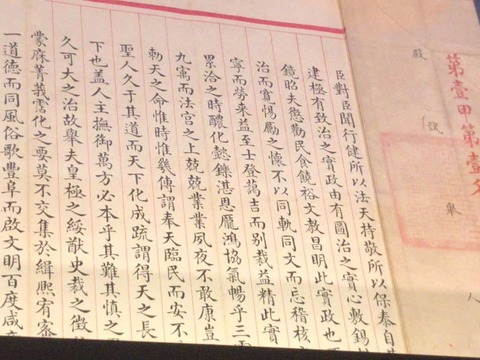 第壹甲第壹名
殿
舉
人
臣對臣聞行健所以法天持敬所以保泰自
建極有致治之實政由有圖治之實心敷錫
鏡昭夫慤勸民食饒裕文教昌明此實政也
治而實惕勵之懷不以同軌同文而忘稽核
寧而勞來益至士登藹吉而別裁益精此實
累洽之時醲化懿鑠湛恩厖鴻協氣暢乎三
九寓而法宮之上兢兢業業夙夜不敢康豈
勑天之命惟時惟幾傳謂奉天臨民而安不
聖人久于其道而天下化成疏謂得天之長
下也蓋人主撫御萬方必本乎其難其慎之
久可大之治故舉夫皇極之綏猷史裁之徵
蒙庥菁莪霑化之要莫不交集於緝熙宥密
一道德而同風俗歌豐阜而啟文明百度咸